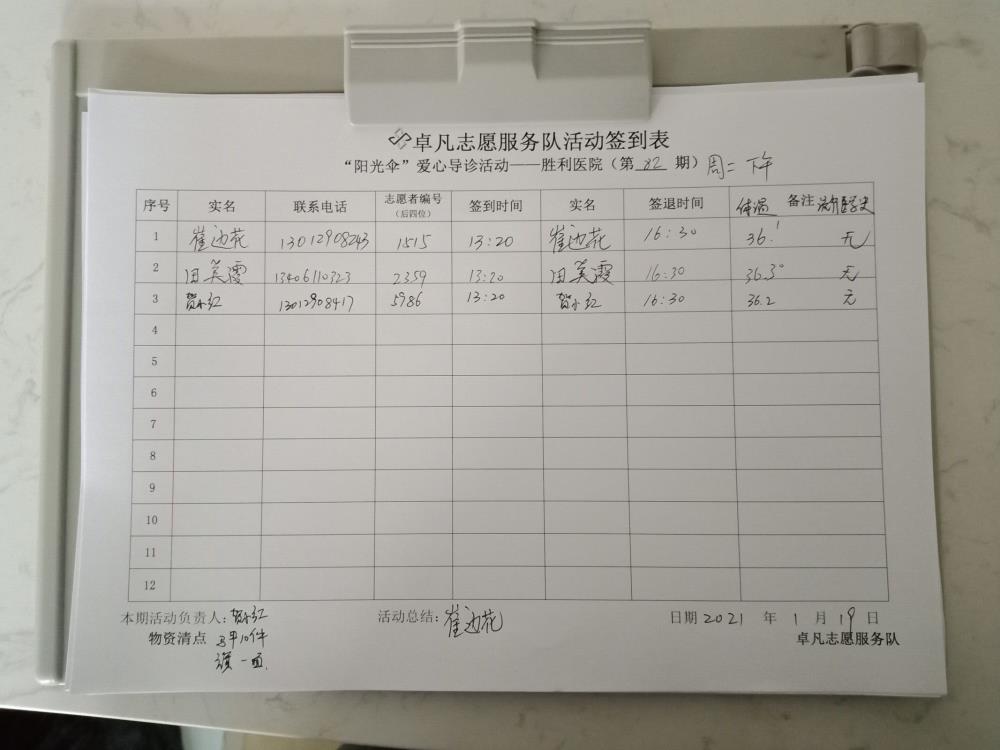 卓凡志愿服务队活动签到表
“阳光伞”爱心导诊活动——胜利医院（第 82 期）周二 下午
序号 实名 联系电话 志愿者编号（后四位） 签到时间 实名 签退时间 体温 备注
1 崔边花 13012908243 1515 13:20 崔边花 16:30 36.1 无
2 田美霞 13406110323 2359 13:20 田美霞 16:30 36.3° 无
3 贺小红 13012908417 5986 13:20 贺小红 16:30 36.2 无
4
5
6
7
8
9
10
11
12
本期活动负责人：贺小红 活动总结：崔边花 日期 2021 年 1 月 19 日
物资清点 马甲10件 卓凡志愿服务队
一面